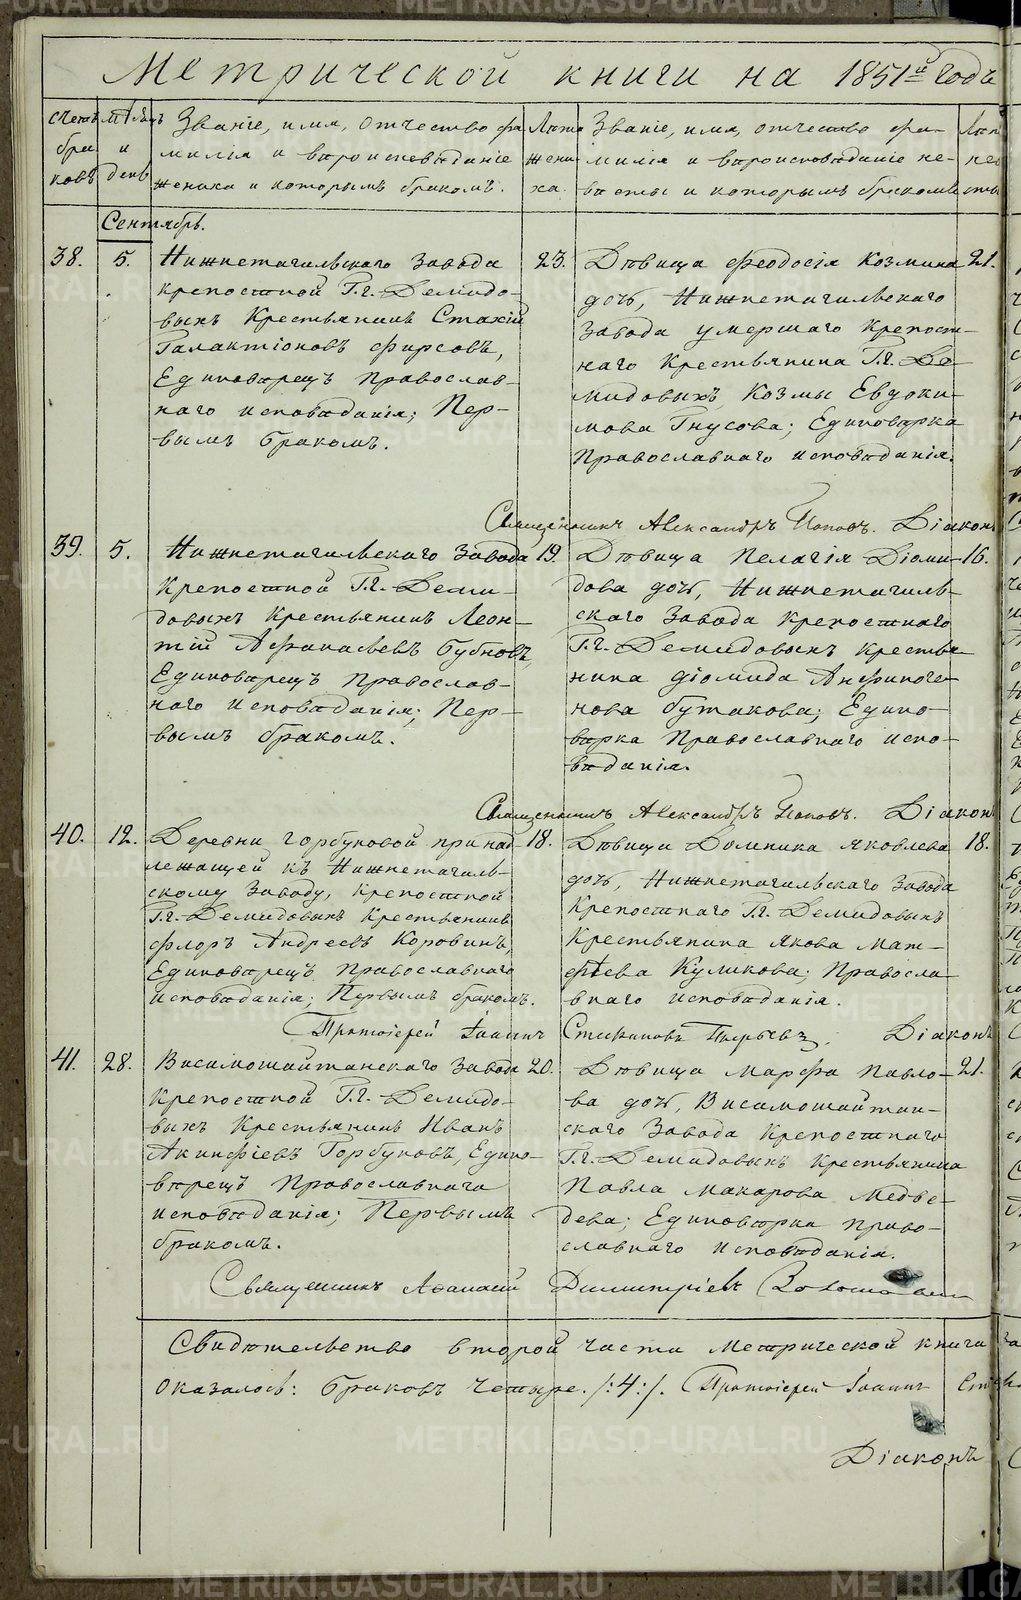 Метрической книги на 1851й годъ
Счетъ браковъ
Мѣсяцъ и день
Званіе, имя, отчество, фамилія и вѣроисповѣданіе жениха и которымъ бракомъ.
Лѣта жениха.
Званіе, имя, отчество фамилія и вѣроисповѣданіе невѣсты и которымъ бракомъ
Лѣта невѣсты
Сентябрь.
38. 5.
Нижнетагильскаго Завода
крепостной Г.г. Демидо-
выхъ Крестьянинъ Стахій
Галактіоновъ Фирсовъ,
Единовѣрецъ Православ-
наго исповѣданія; Пер-
вымъ бракомъ.
23.
Дѣвица Феодосія Козмина
дочь, Нижнетагильскаго
Завода умершаго крепост-
наго Крестьянина Г.г. Де-
мидовыхъ, Козмы Евдоки-
мова Гнусова; Единовѣрка
Православнаго исповѣданія.
21.
Священникъ Александръ Поповъ. Діаконъ
39. 5.
Нижнетагильскаго Завода
Крепостной Г.г. Деми-
довыхъ Крестьянинъ Леон-
тій Афанасьевъ Бубновъ,
Единовѣрецъ Православ-
наго исповѣданія; Пер-
вымъ бракомъ.
19.
Дѣвица Пелагія Діоми-
дова дочь, Нижнетагиль-
скаго Завода Крепостнаго
Г.г. Демидовыхъ Крестья-
нина Діомида Анфиноге-
нова Бутакова; Едино-
вѣрка Православнаго испо-
вѣданія.
16.
Священникъ Александръ Поповъ. Діаконъ
40. 12.
Деревни Горбуновой принад-
лежащей къ Нижнетагиль-
скому Заводу, крепостной
Г.г. Демидовыхъ Крестьянинъ
Флоръ Андреевъ Коровинъ,
Единовѣрецъ Православнаго
исповѣданія; Первымъ бракомъ.
18.
Дѣвица Домника Яковлева
дочь, Нижнетагильскаго Завода
Крепостнаго Г.г. Демидовыхъ
Крестьянина Якова Мат-
фѣева Куликова; Правосла-
внаго исповѣданія.
18.
Протоіерей Іоаннъ Діаконъ
41. 28.
Висимошайтанскаго Завода
Крепостной Г.г. Демидо-
выхъ Крестьянинъ Иванъ
Акинфіевъ Горбуновъ, Едино-
вѣрецъ Православнаго
исповѣданія; Первымъ
бракомъ.
20.
Дѣвица Марфа Павло-
ва дочь, Висимошайтан-
скаго Завода Крепостнаго
Г.г. Демидовыхъ Крестьянина
Павла Макарова Медве-
дева; Единовѣрка Право-
славнаго исповѣданія.
21.
Священникъ Афанасій Димитріевъ
Свидѣтельство второй части Метрической книги
оказалось: браковъ четыре. /:4:/. Протоіерей Іоаннъ
Діаконъ
METRIKI.GASO-URAL.RU